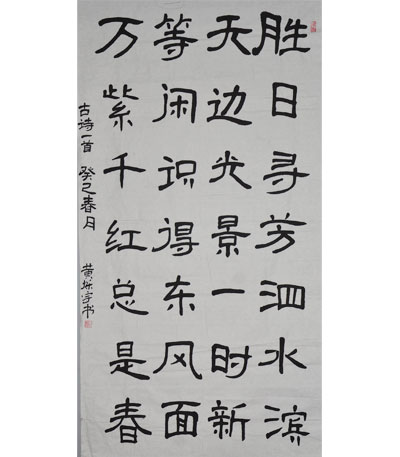 胜日寻芳泗水滨
无边光景一时新
等闲识得东风面
万紫千红总是春
古诗一首 癸巳春月 黄宇书